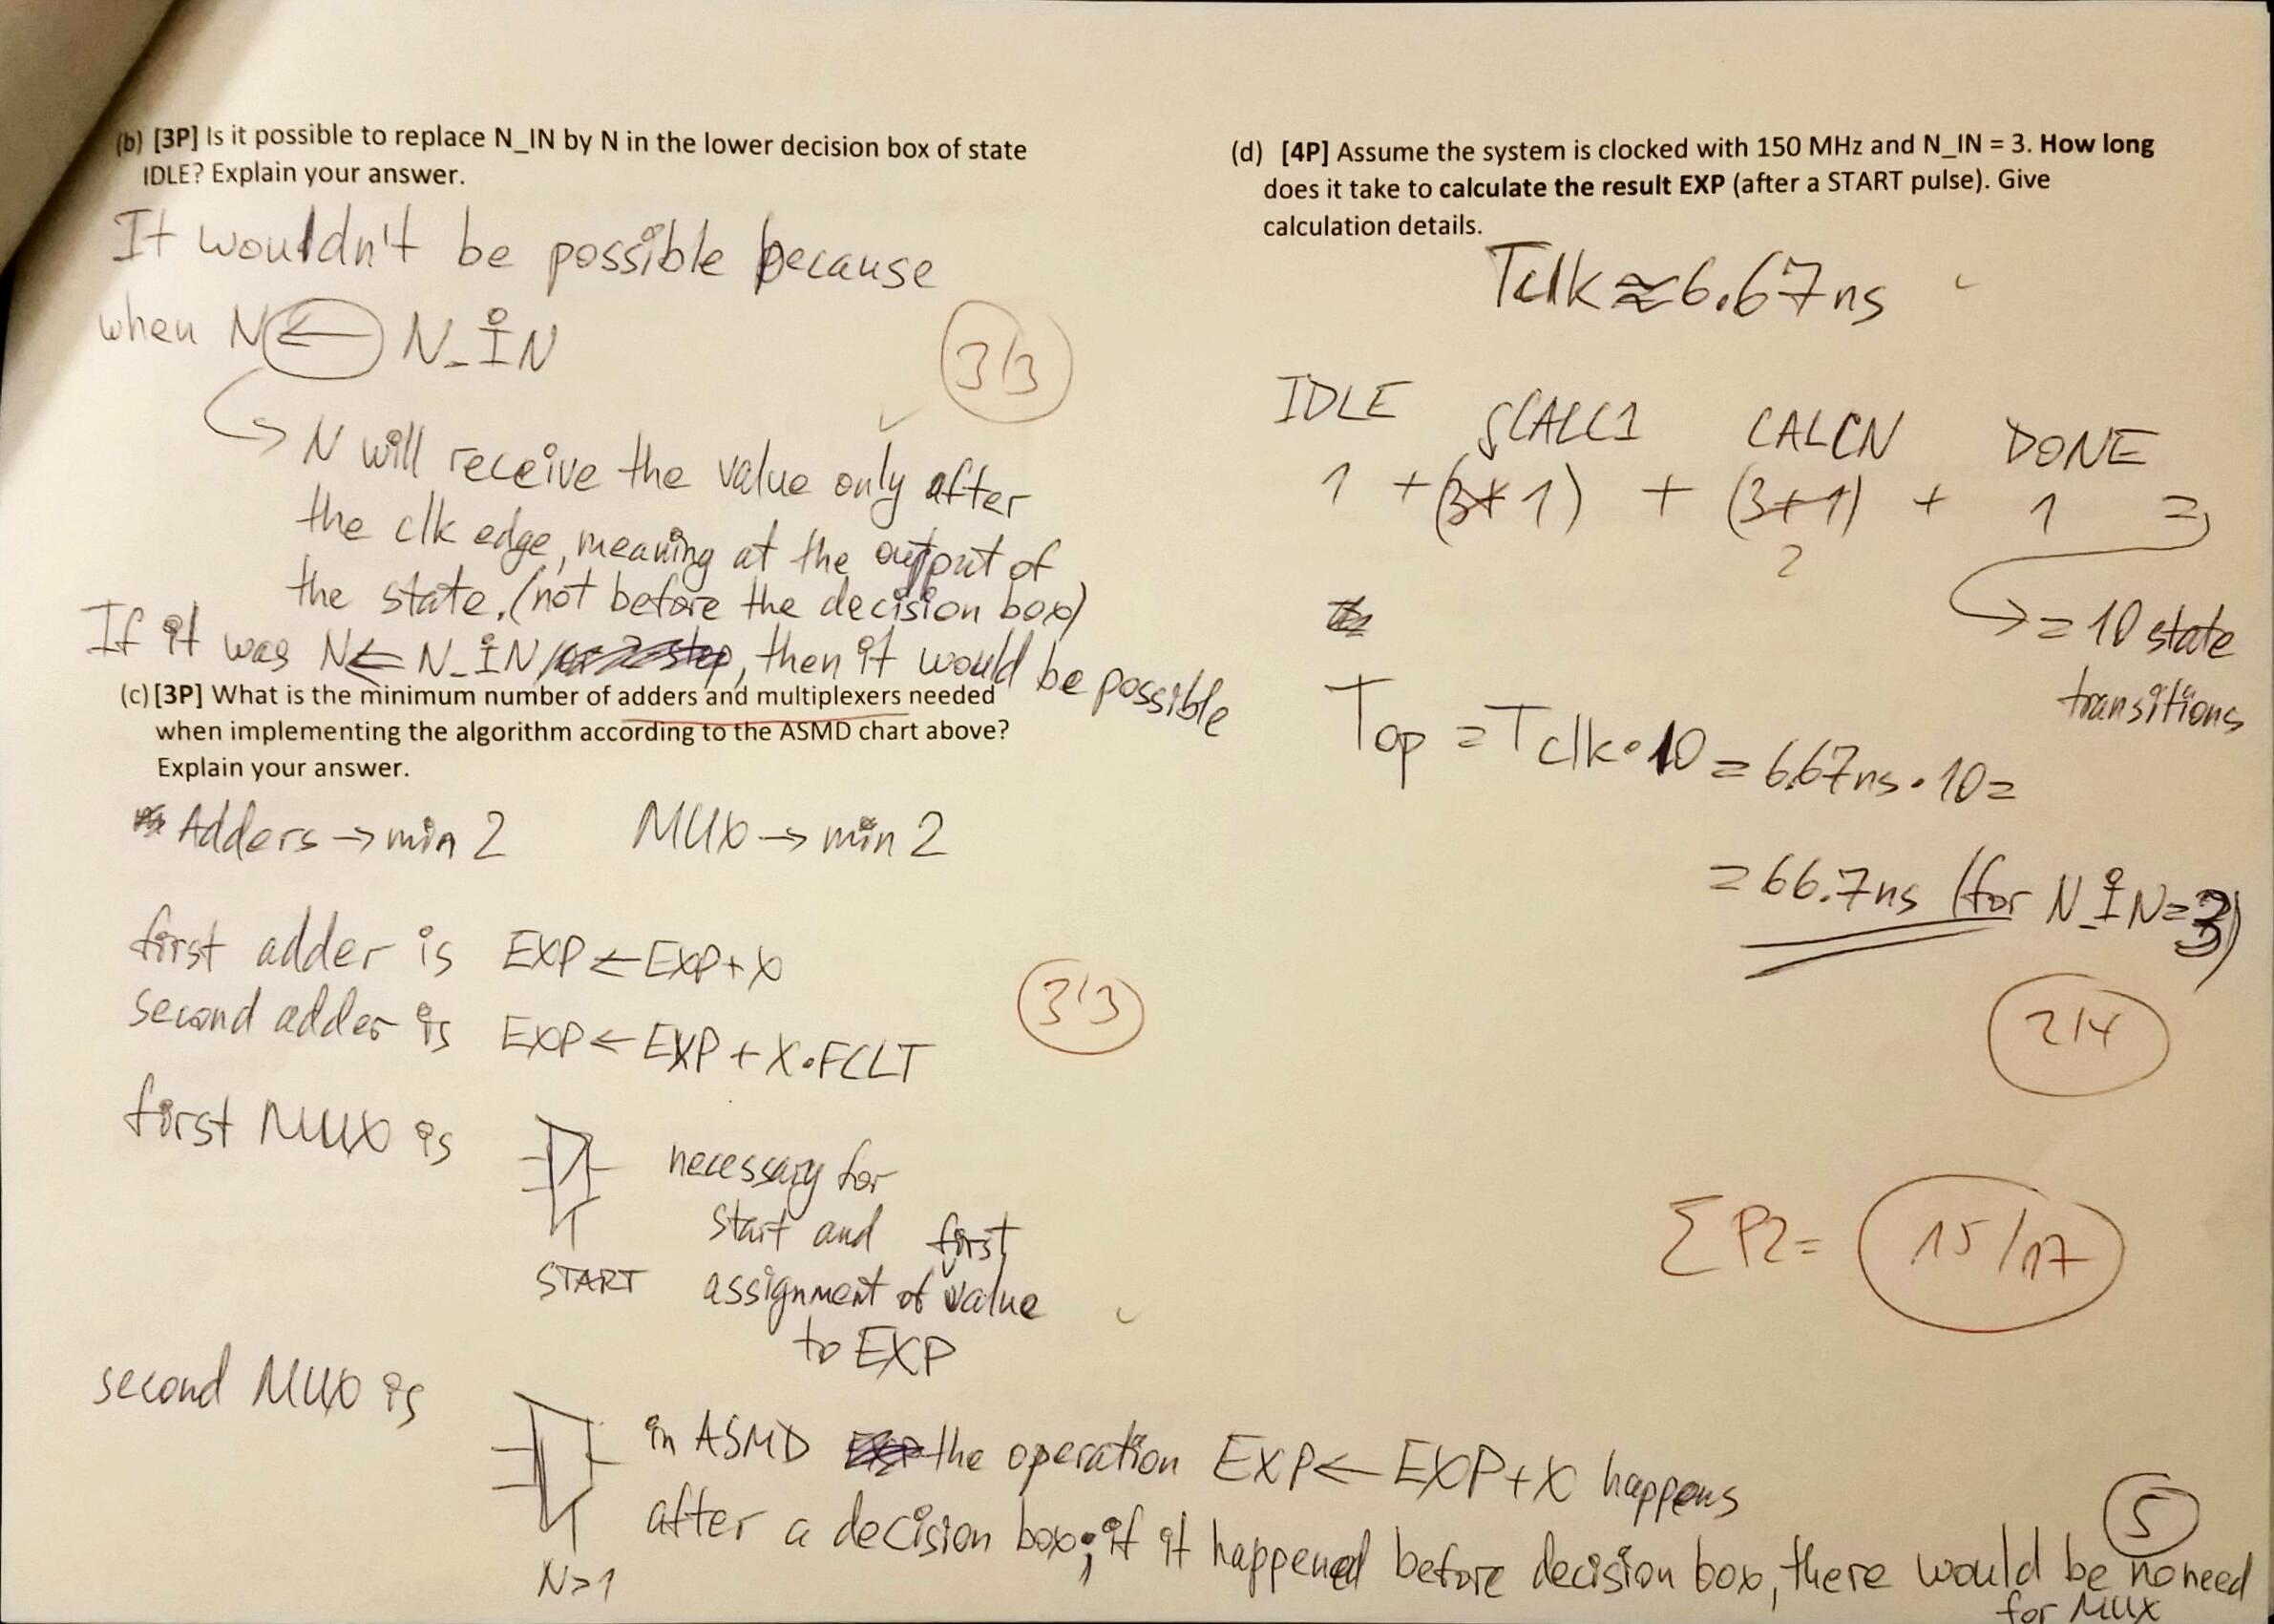 (b) [3P] Is it possible to replace N_IN by N in the lower decision box of state
IDLE? Explain your answer.
It wouldn't be possible because
when N ← N_IN
3/3
N will receive the value only after
the clk edge, meaning at the output of
the state. (not before the decision box)
If it was N ← N_IN, then it would be possible
(c) [3P] What is the minimum number of adders and multiplexers needed
when implementing the algorithm according to the ASMD chart above?
Explain your answer.
Adders → min 2 MUX → min 2
first adder is EXP ← EXP + X
second adder is EXP ← EXP + X·FCLT
3/3
first MUX is necessary for
start and first
START assignment of value
to EXP
second MUX is
in ASMD the operation EXP ← EXP + X happens
after a decision box; if it happened before decision box, there would be no need
for MUX
N>1
(d) [4P] Assume the system is clocked with 150 MHz and N_IN = 3. How long
does it take to calculate the result EXP (after a START pulse). Give
calculation details.
Tclk ≈ 6.67ns
IDLE CALC1 CALCN DONE
1 + (3+1) + (3+1) + 1 =
2
= 10 state
transitions
Top = Tclk · 10 = 6.67ns · 10 =
= 66.7ns (for N_IN=3)
2/4
Σ P2 = 15/17
5